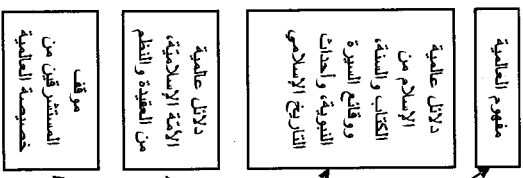 مفهوم العالمية
دلائل عالمية
الإسلام من
الكتاب والسنة،
ووقائع السيرة
النبوية، وأحداث
التاريخ الإسلامي
دلائل عالمية
الأمة الإسلامية،
من العقيدة والنظم
موقف
المستشرقين من
خصيصة العالمية